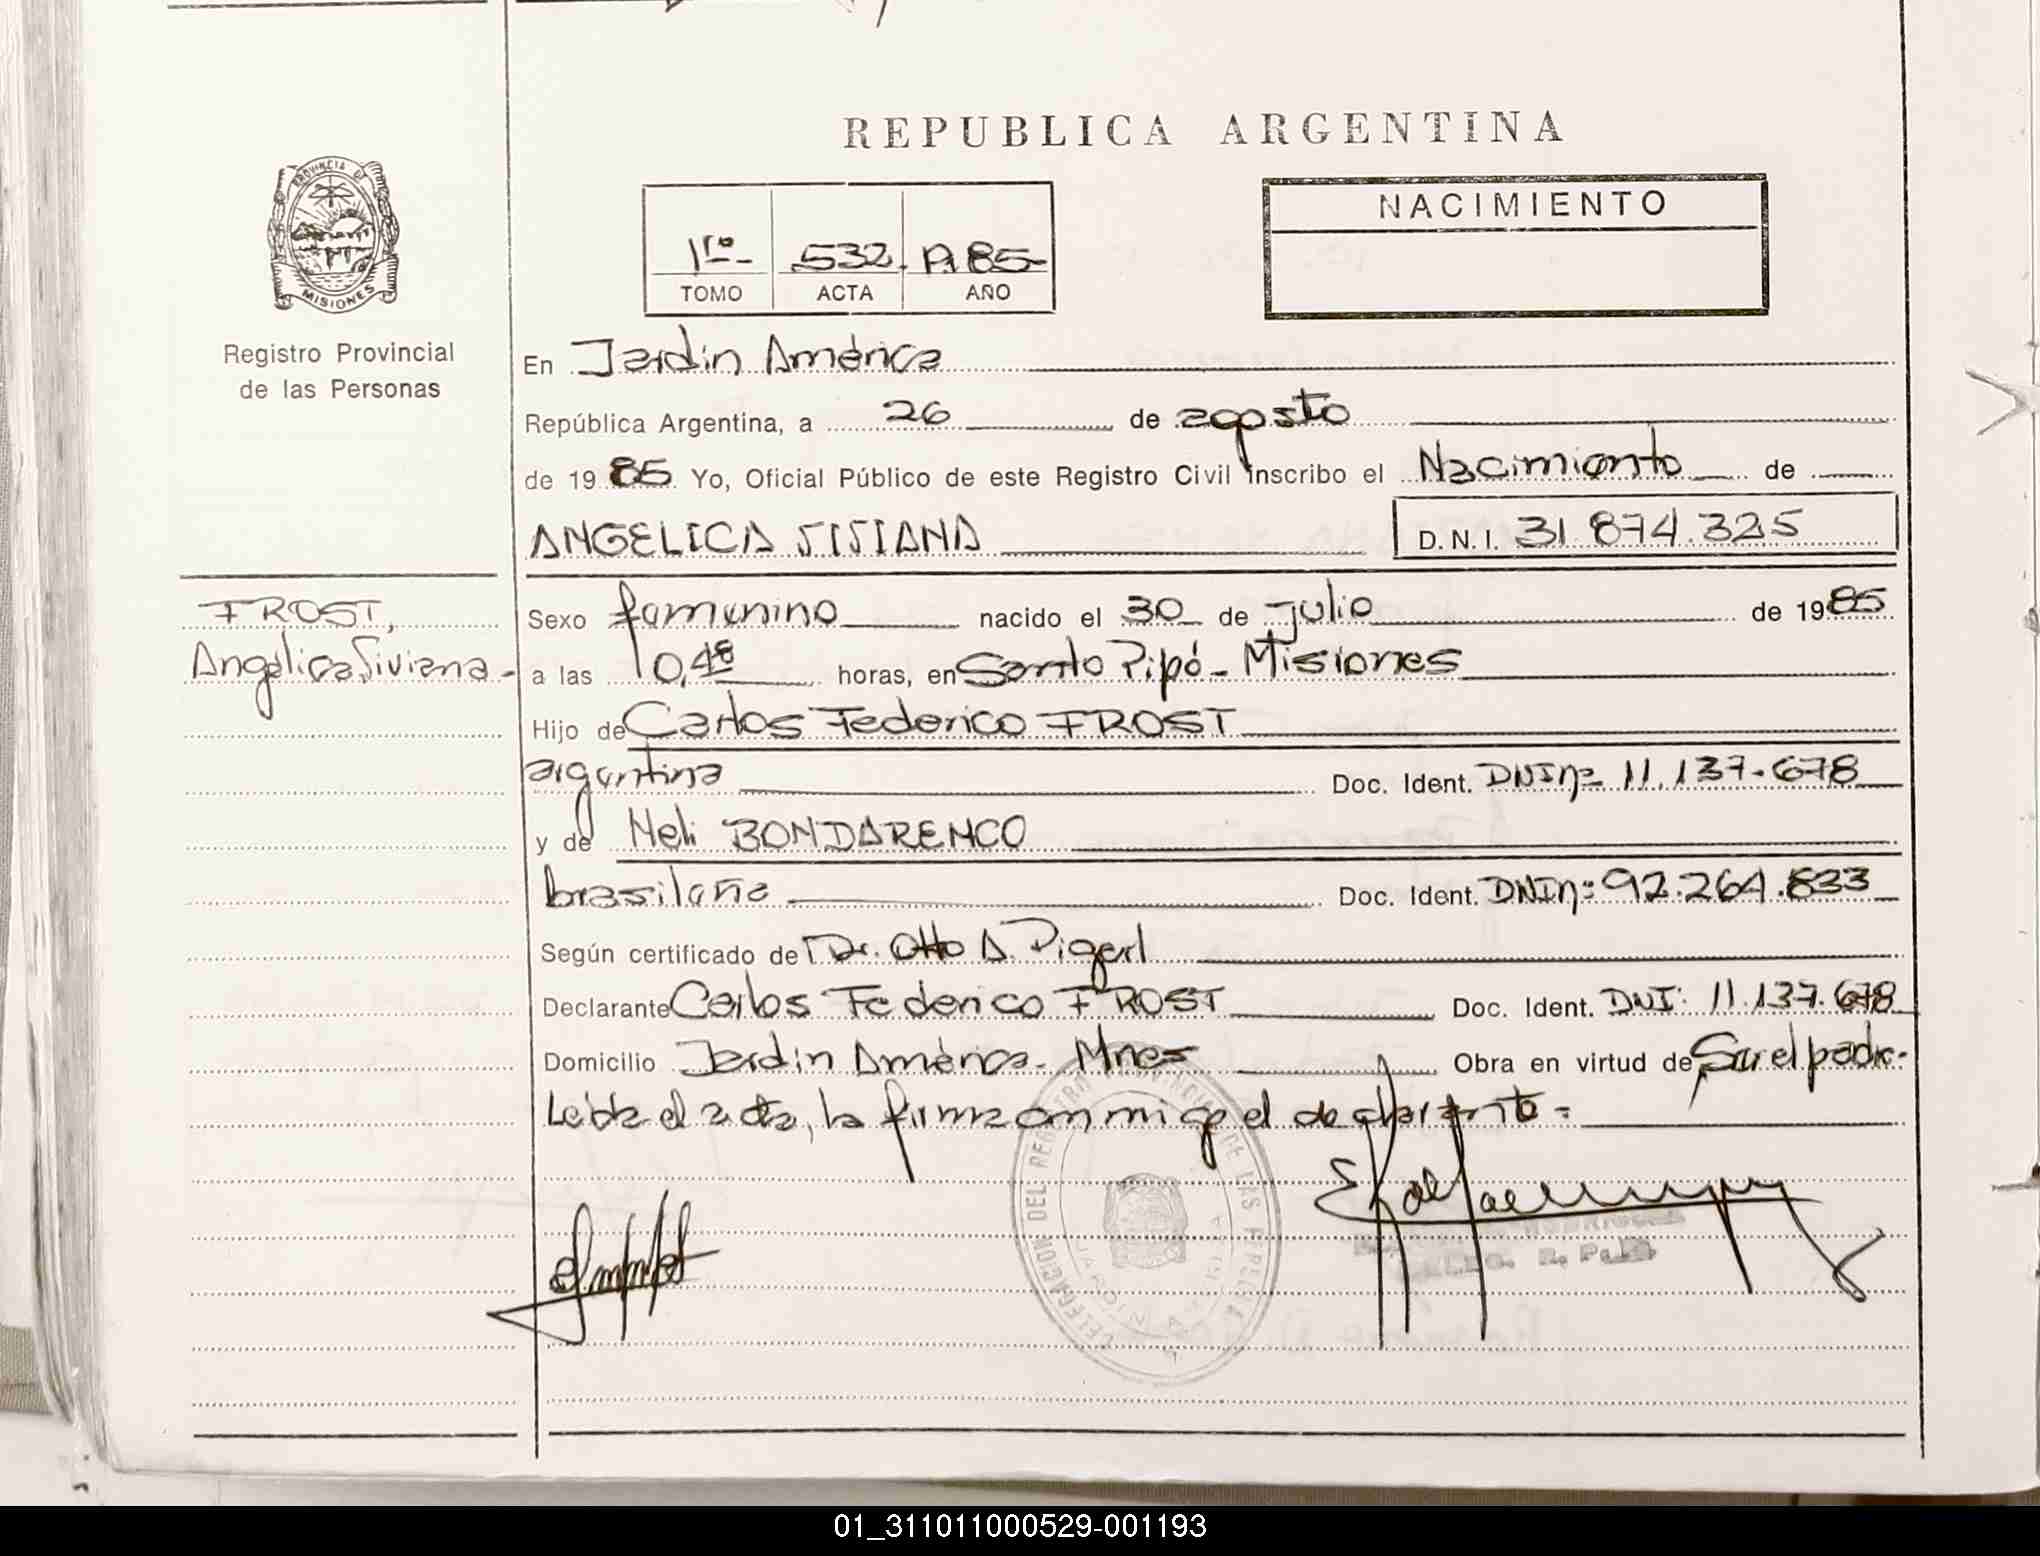 REPUBLICA ARGENTINA
PROVINCIA DE
MISIONES
Registro Provincial
de las Personas
1ro- 532. A. 85-
TOMO ACTA AÑO
NACIMIENTO
En Jardín América
República Argentina, a 26 de agosto
de 1985 Yo, Oficial Público de este Registro Civil inscribo el Nacimiento de
ANGELICA SISIANA D.N.I. 31.874.325
FROST,
Angélica Siviana-
Sexo femenino nacido el 30 de julio de 1985
a las 10,48 horas, en Santo Pipó- Misiones
Hijo de Carlos Federico FROST
argentina Doc. Ident. DNI nº 11.137.678
y de Neli BONDARENCO
brasileña Doc. Ident. DNI nº: 92.264.833
Según certificado de Dr. Otto A. Pigerl
Declarante Carlos Federico FROST Doc. Ident. DNI: 11.137.678
Domicilio Jardín América- Mnes Obra en virtud de Sur el padre-
Leída el acta, la firma conmigo el declarante-
DELEGACION DEL REGISTRO PROVINCIAL DE LAS PERSONAS
JARDIN AMERICA
01_311011000529-001193